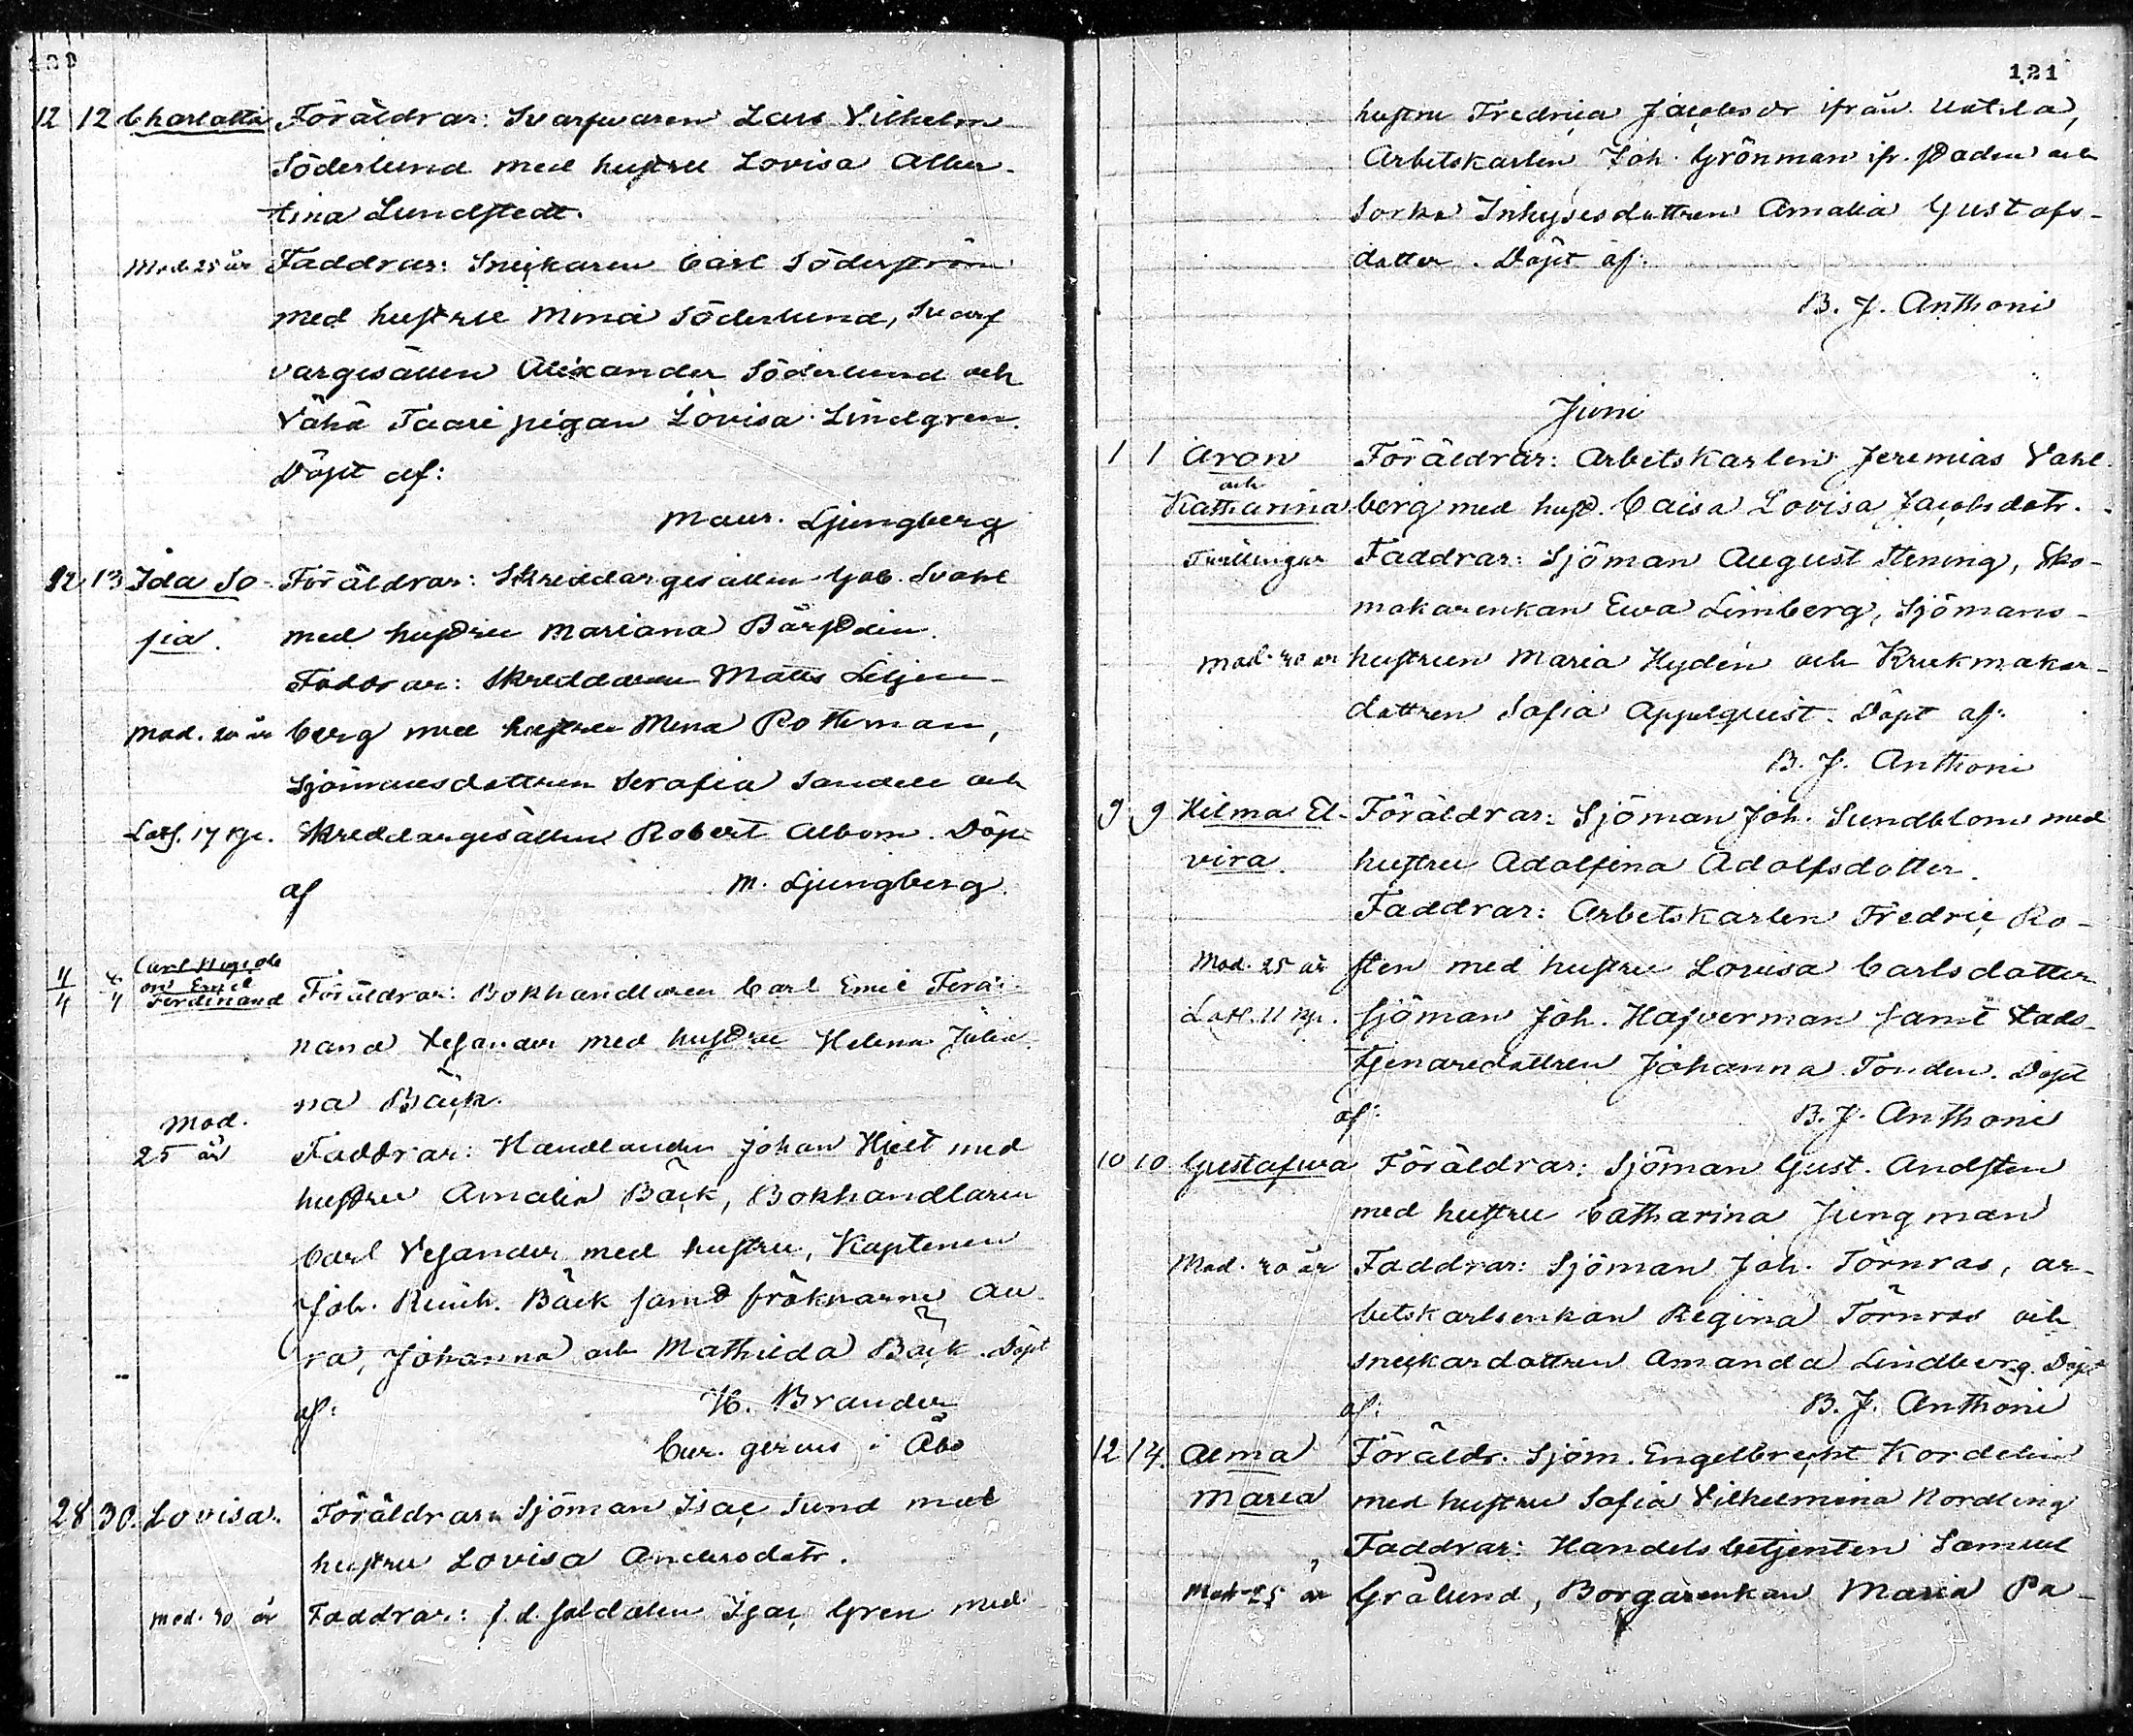 12 12 Charlotta Föräldrar: Svarfvaren Lars Vilhelm
Söderlund med hustru Lovisa Alber-
tina Lundstedt.
Mod. 25 år Faddrar: Snickaren Carl Söderström
med hustru Mina Söderlund, Svarf
vargesällen Alexander Söderlund och
Vähä Taari pigan Lovisa Lindgren.
Döpt af:
Maur. Ljungberg
12 13 Ida So- Föräldrar: Skreddargesällen Gab. Svahl
fia. med hustru Mariana Bärstdin.
Faddrar: Skreddaren Matts Liljen-
Mod. 20 år berg med hustru Mina Rothman,
Sjömansdottren Serafia Sandell och
Latf. 17 kp. Skreddargesällen Robert Albom. Döpt
af M. Ljungberg.
Carl Hugo
on Emil
4/4 Ferdinand Föräldrar: Bokhandlaren Carl Emil Ferdi-
nand Vesander med hustru Helena Julia-
na Bäck.
Mod.
25 år Faddrar: Handlanden Johan Hjelt med
hustru Amalia Bäck, Bokhandlaren
Carl Vesander med hustru, Kaptenen
Joh. Reinh. Bäck samt fröknarne Au-
ra, Johanna och Mathilda Bäck. Döpt
af: H. Brander
Cur. gerens i Åbo
28 30. Lovisa. Föräldrar: Sjöman Isac Sund med
hustru Lovisa Andersdotr.
Mod. 40 år Faddrar: f. d. soldaten Isac Gren med
121
hustru Fredrica Jacobsdr ifrån Uotila,
Arbetskarlen Joh. Grönman ifr. staden och
Sorka Inhysesdottren Amalia Gustafs-
dotter. Döpt af:
B. J. Anthoni
Juni
1 1 Aron Föräldrar: Arbetskarlen Jeremias Vahl-
och
Katharina berg med hust. Caisa Lovisa Jacobsdotr.
Tvillingar Faddrar: Sjöman August Stening, Sko-
makarenkan Ewa Limberg, Sjömans-
Mod. 40 år hustrun Maria Hydén och Krukmakar-
dottren Sofia Appelquist. Döpt af:
B. J. Anthoni
9 9 Hilma El- Föräldrar: Sjöman Joh. Sundblom med
vira. hustru Adolfina Adolfsdotter.
Faddrar: Arbetskarlen Fredric Ro-
Mod. 25 år sten med hustru Lovisa Carlsdotter
Latf. 11 kp. Sjöman Joh. Hafverman samt Stads-
tjenaredottren Johanna Tonden. Döpt
af: B. J. Anthoni
10 10 Gustafva Föräldrar: Sjöman Gust. Andsten
med hustru Catharina Jungman
Mod. 40 år Faddrar: Sjöman Joh. Törnros, ar-
betskarlsenkan Regina Törnros och
snickardottren Amanda Lindberg. Döpt
af: B. J. Anthoni
12 14. Alma Föräldr. Sjöm. Engelbrecht Kordelin
Maria med hustru Sofia Vilhelmina Nordling
Faddrar: Handelsbetjenten Samuel
Mod. 25 år Grälund, Borgarenkan Maria Pa-